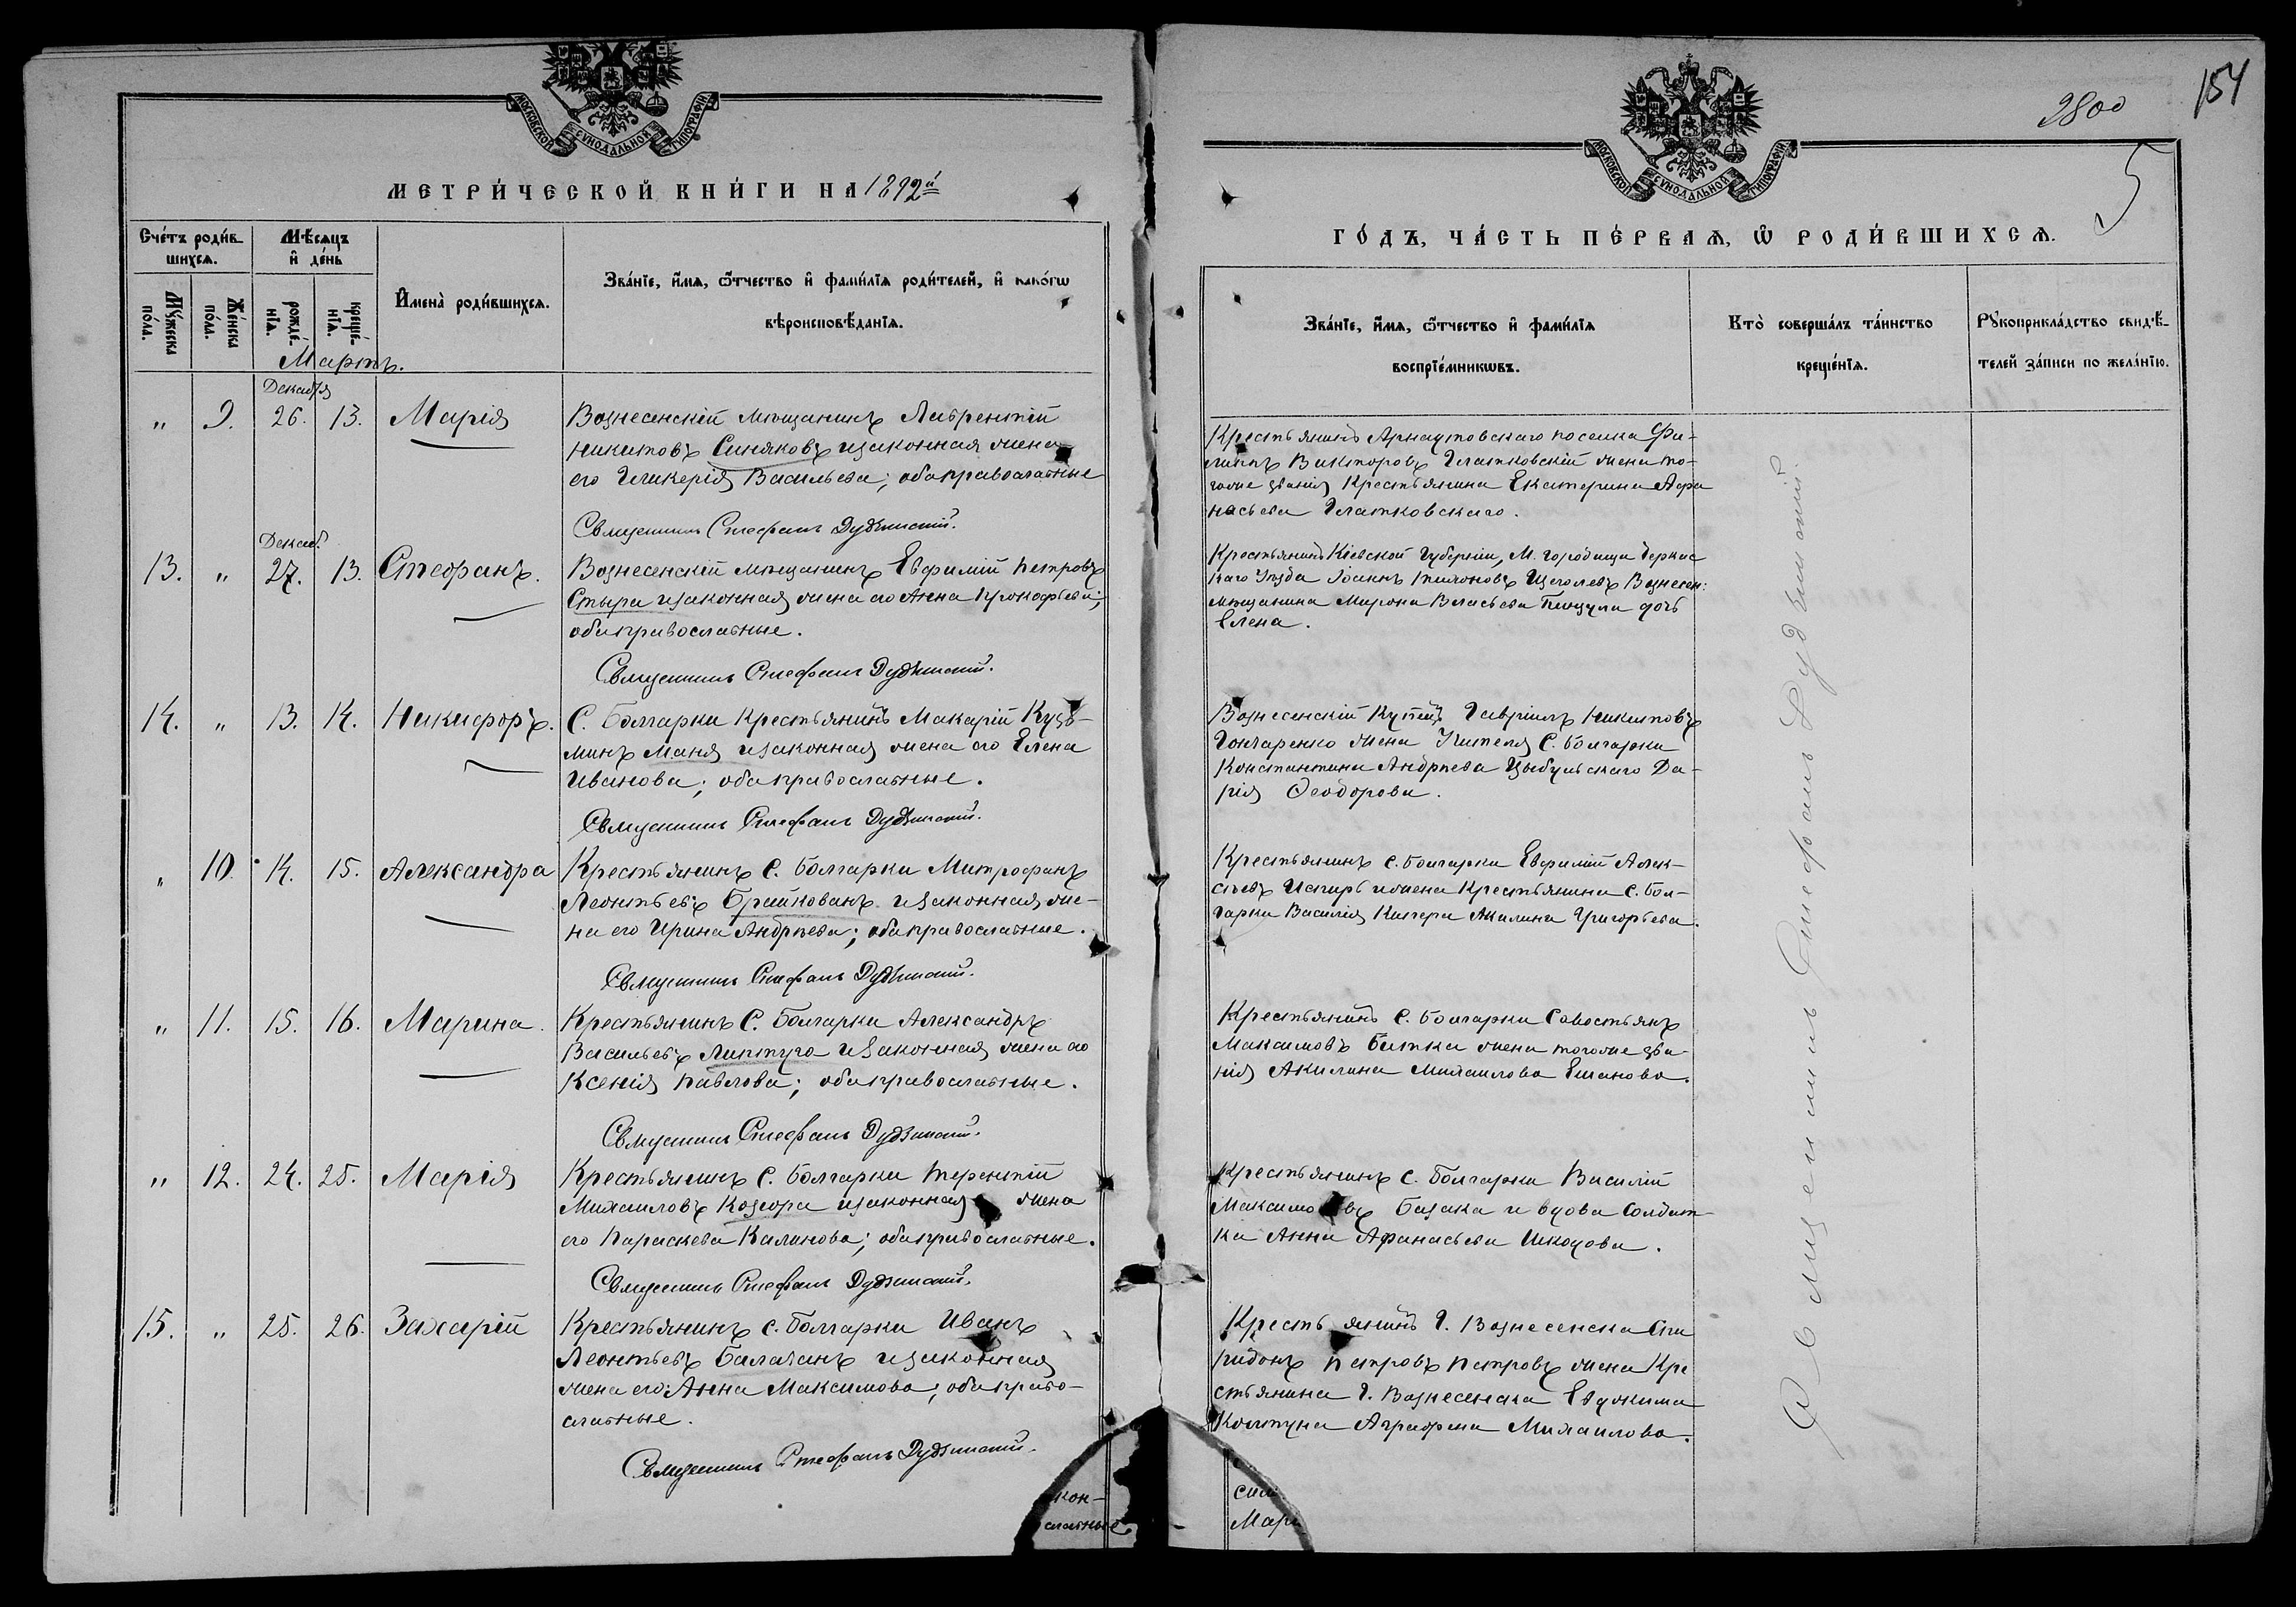 МОСКОВСКОЙ СѴНОДАЛЬНОЙ ТИПОГРАФІИ
МЕТРИ́ЧЕСКОЙ КНИ́ГИ НА 1892й
Счéтъ роди́в-
шихсѧ.
Мꙋ́жеска
пóла.
Жéнска
пóла.
Мѣ́сѧцъ
и҆ дéнь
рождé-
нїѧ.
крещé-
нїѧ.
И҆менà роди́вшихсѧ.
Звáнїе, и҆́мѧ, ѻ҆́тчество и҆ фами́лїѧ роди́телей, и҆ какóгѡ
вѣроисповѣ́данїѧ.
Мартъ.
Декабря
„ 9. 26. 13. Марія
Вознесенскій мѣщанинъ Лаврентій
Никитовъ Синяковъ изаконная жена
его Гликерія Васильева; обаправославные
Священникъ Стефанъ Дудзинскій.
Декаб.
13. „ 27. 13. Стефанъ.
Вознесенскій мѣщанинъ Евфимій Петровъ
Стыра изаконная жена его Анна Прокофьева;
обаправославные.
Священникъ Стефанъ Дудзинскій.
14. „ 13. 14. Никифоръ.
С. Болгарки Крестьянинъ Макарій Кузь-
минъ Маня изаконная жена его Елена
Иванова; обаправославные.
Священникъ Стефанъ Дудзинскій.
„ 10. 14. 15. Александра
Крестьянинъ С. Болгарки Митрофанъ
Леонтьевъ Брайкованъ изаконная же-
на его Ирина Андреева; обаправославные.
Священникъ Стефанъ Дудзинскій.
„ 11. 15. 16. Марина.
Крестьянинъ С. Болгарки Александръ
Васильевъ Липтуга изаконная жена его
Ксенія Павлова; обаправославные.
Священникъ Стефанъ Дудзинскій.
„ 12. 24. 25. Марія
Крестьянинъ С. Болгарки Терентій
Михаиловъ Козюра изаконная жена
его Параскева Калинова; обаправославные.
Священникъ Стефанъ Дудзинскій.
15. „ 25. 26. Захарій
Крестьянинъ с. Болгарки Иванъ
Леонтьевъ Балабанъ изаконная
жена его Анна Максимова; обаправо-
славные.
Священникъ Стефанъ Дудзинскій.
кон-
славные
154
2800
5
МОСКОВСКОЙ СѴНОДАЛЬНОЙ ТИПОГРАФІИ
ГÓДЪ, ЧÁСТЬ ПÉРВАѦ, Ѽ РОДИ́ВШИХСѦ.
Звáнїе, и҆́мѧ, ѻ҆́тчество и҆ фами́лїѧ
воспрїéмникѡвъ.
Ктò совершáлъ тáинство
крещéнїѧ.
Рꙋкоприклáдство свидѣ́-
телей зáписи по желáнїю.
Крестьянинъ Арнаутовскаго поселка Фи-
липпъ Викторовъ Глатковскій жена то-
гоже званія Крестьянина Екатерина Афа
насьева Глатковскаго.
Крестьянинъ Кіевской Губерніи, М. Городища Черкас
каго Уѣзда Іоаннъ Тихоновъ Щеголевъ Вознесен:
мѣщанина Мирона Власьева дочь
Елена.
Вознесенскій Купецъ Гавріилъ Никитовъ
Гончаренко жена Жителя С. Болгарки
Константина Андреева Цыбульскаго Да-
рія Ѳеодорова.
Крестьянинъ с. Болгарки Евфимій Алек-
сѣевъ ижена Крестьянина с. Бол-
гарки Василія Акилина Григорьева.
Крестьянинъ с. Болгарки Савостьянъ
Максимовъ Битка жена тогоже зва-
нія Акилина Михаилова Ешанова.
Крестьянинъ С. Болгарки Василій
Максимовъ Базака и вдова Солдат-
ка Анна Афанасьева Шкодова.
Крестьянинъ Г. Вознесенска Спи
ридонъ Петровъ Петровъ жена Кре
стьянина Г. Вознесенска Евдокима
Колтуна Аграфена Михаилова.
Священникъ Стефанъ Дудзинскій